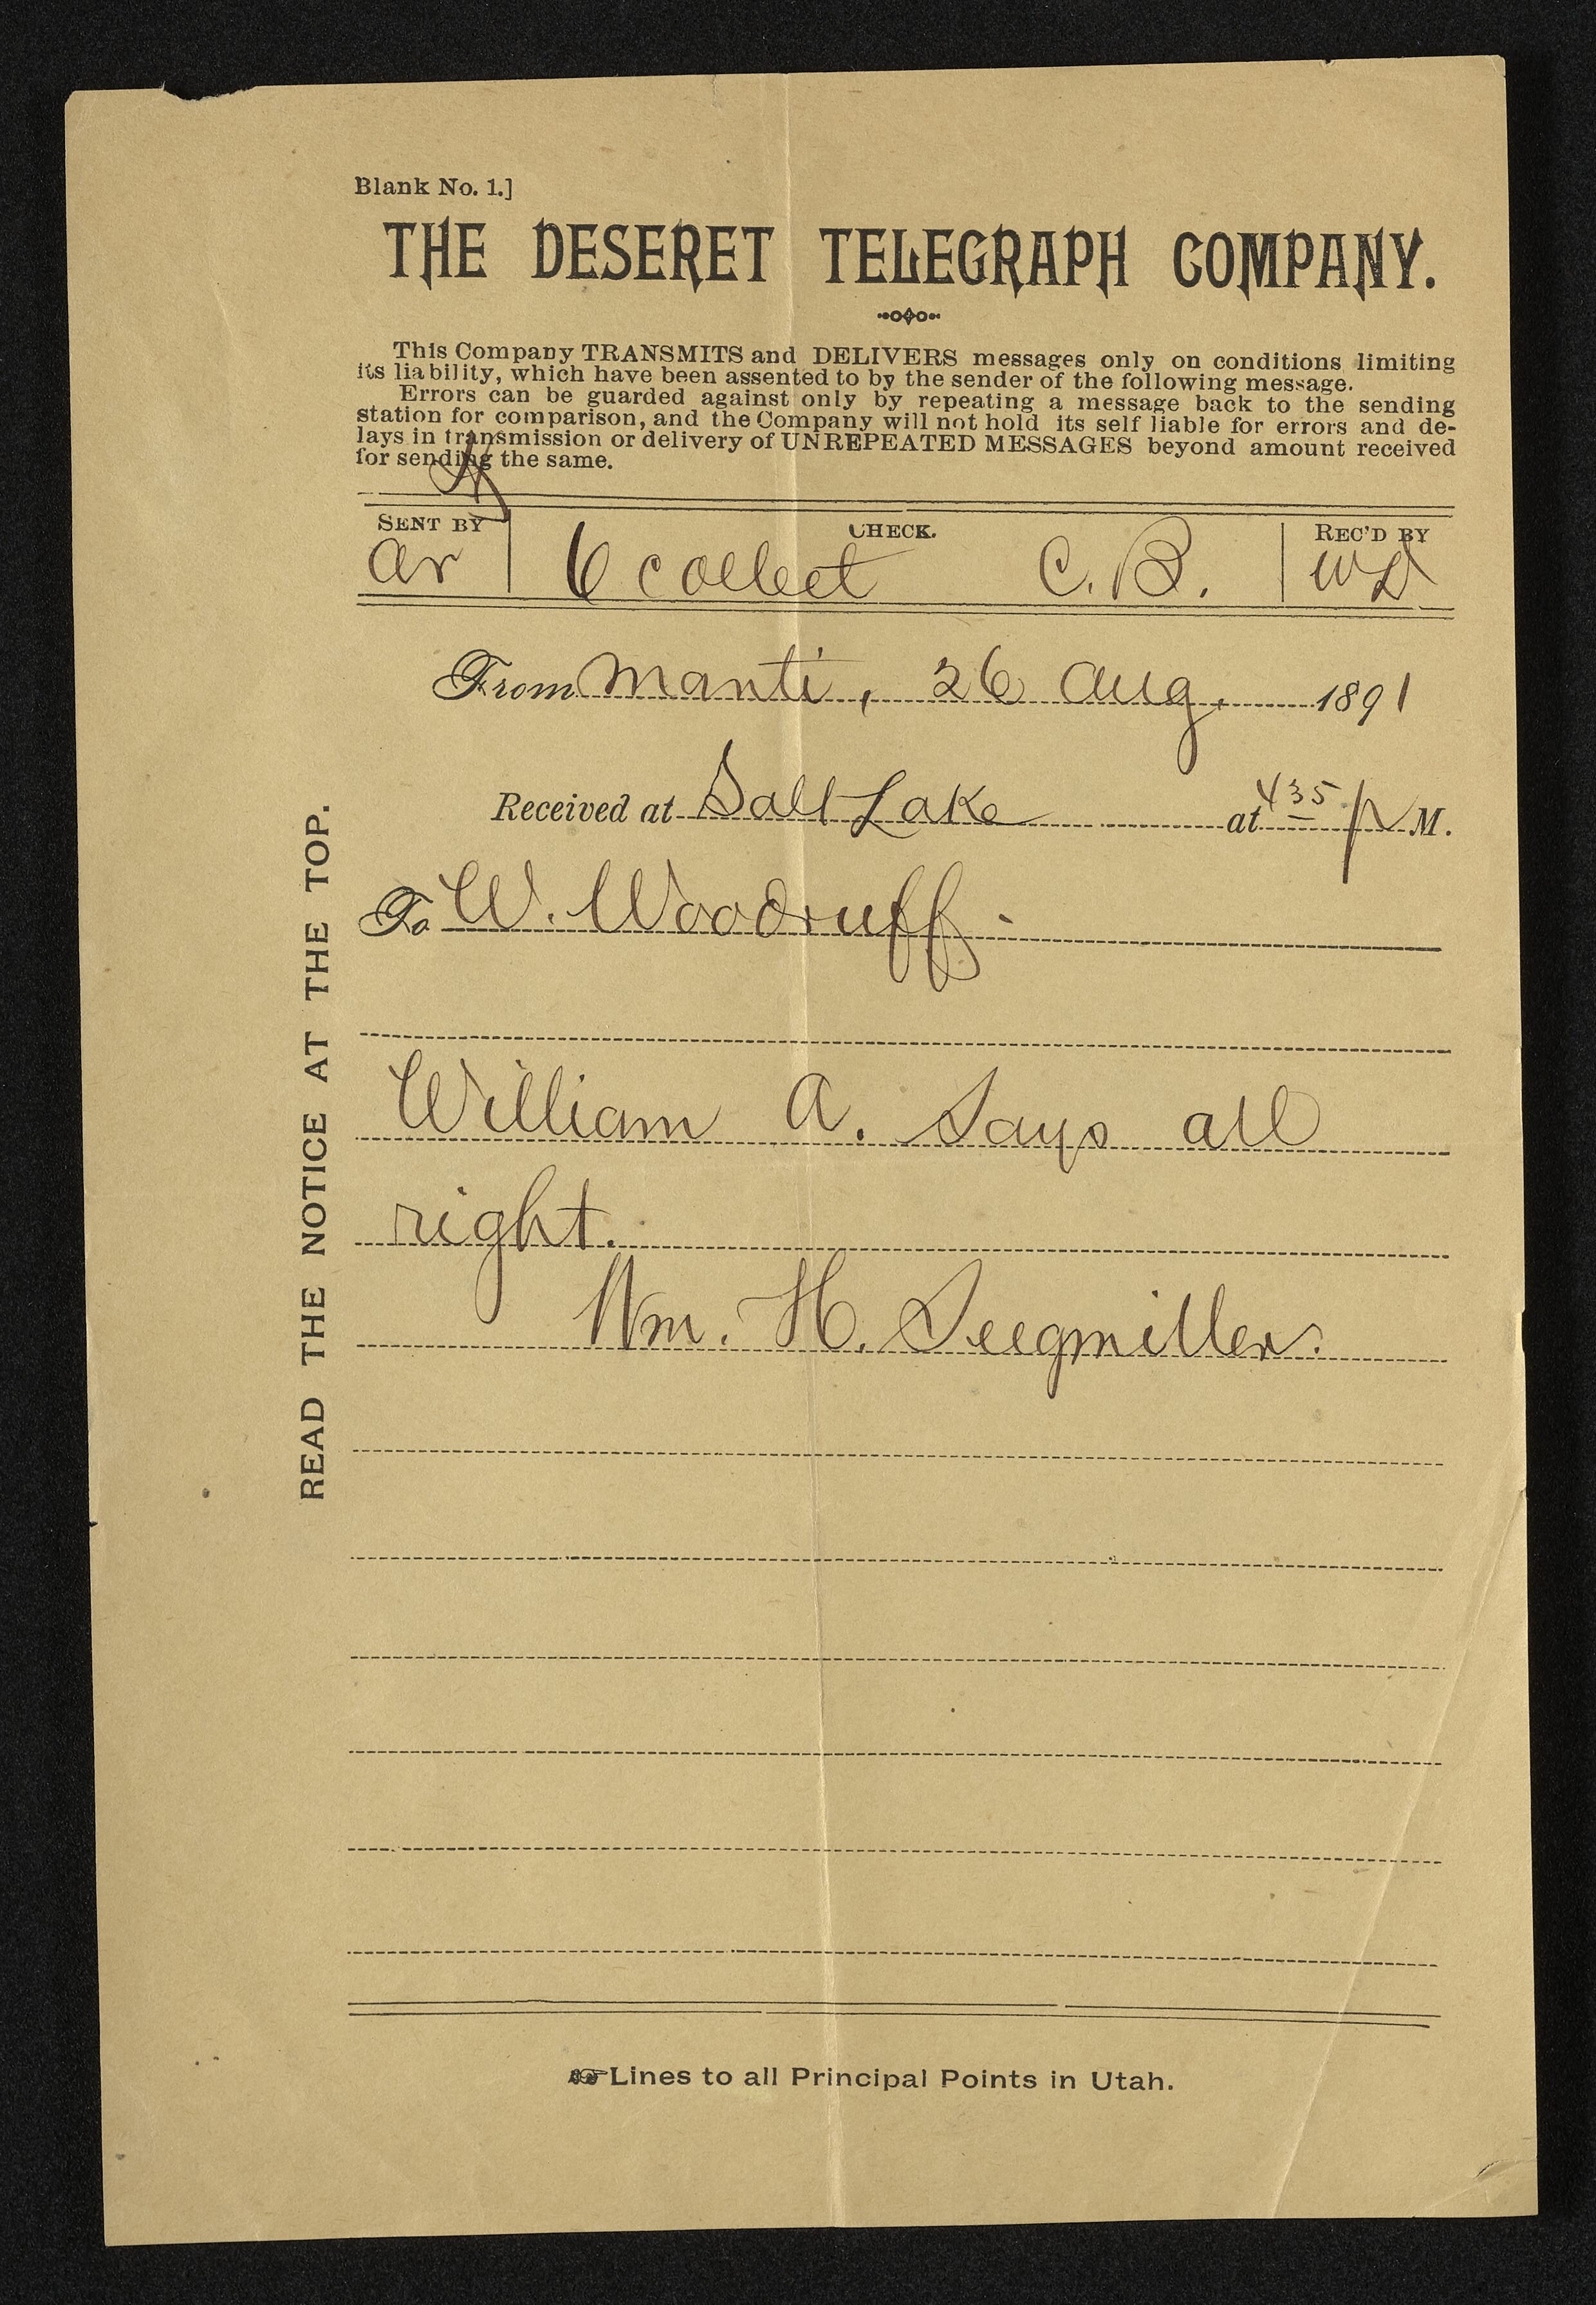 Blank No. 1.]
THE DESERET TELEGRAPH COMPANY.
This Company TRANSMITS and DELIVERS messages only on conditions limiting
its liability, which have been assented to by the sender of the following message.
Errors can be guarded against only by repeating a message back to the sending
station for comparison, and the Company will not hold its self liable for errors and de-
lays in transmission or delivery of UNREPEATED MESSAGES beyond amount received
for sending the same.
SENT BY CHECK. REC'D BY
ar 6 collect C. B. WD
From Manti, 26 Aug. 1891
Received at Salt Lake at 435 p M.
To W. Woodruff.
William A. Says all
right.
Wm. H. Seegmiller.
READ THE NOTICE AT THE TOP.
Lines to all Principal Points in Utah.